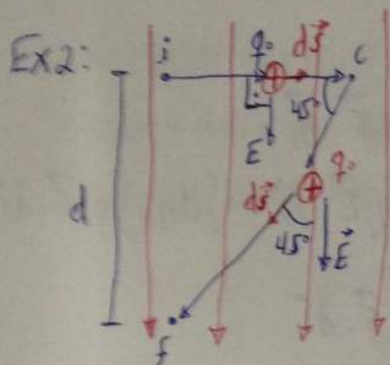 Ex2: i q₀ ds⃗ c
45°
E⃗
d
q₀
ds⃗
45° E⃗
f